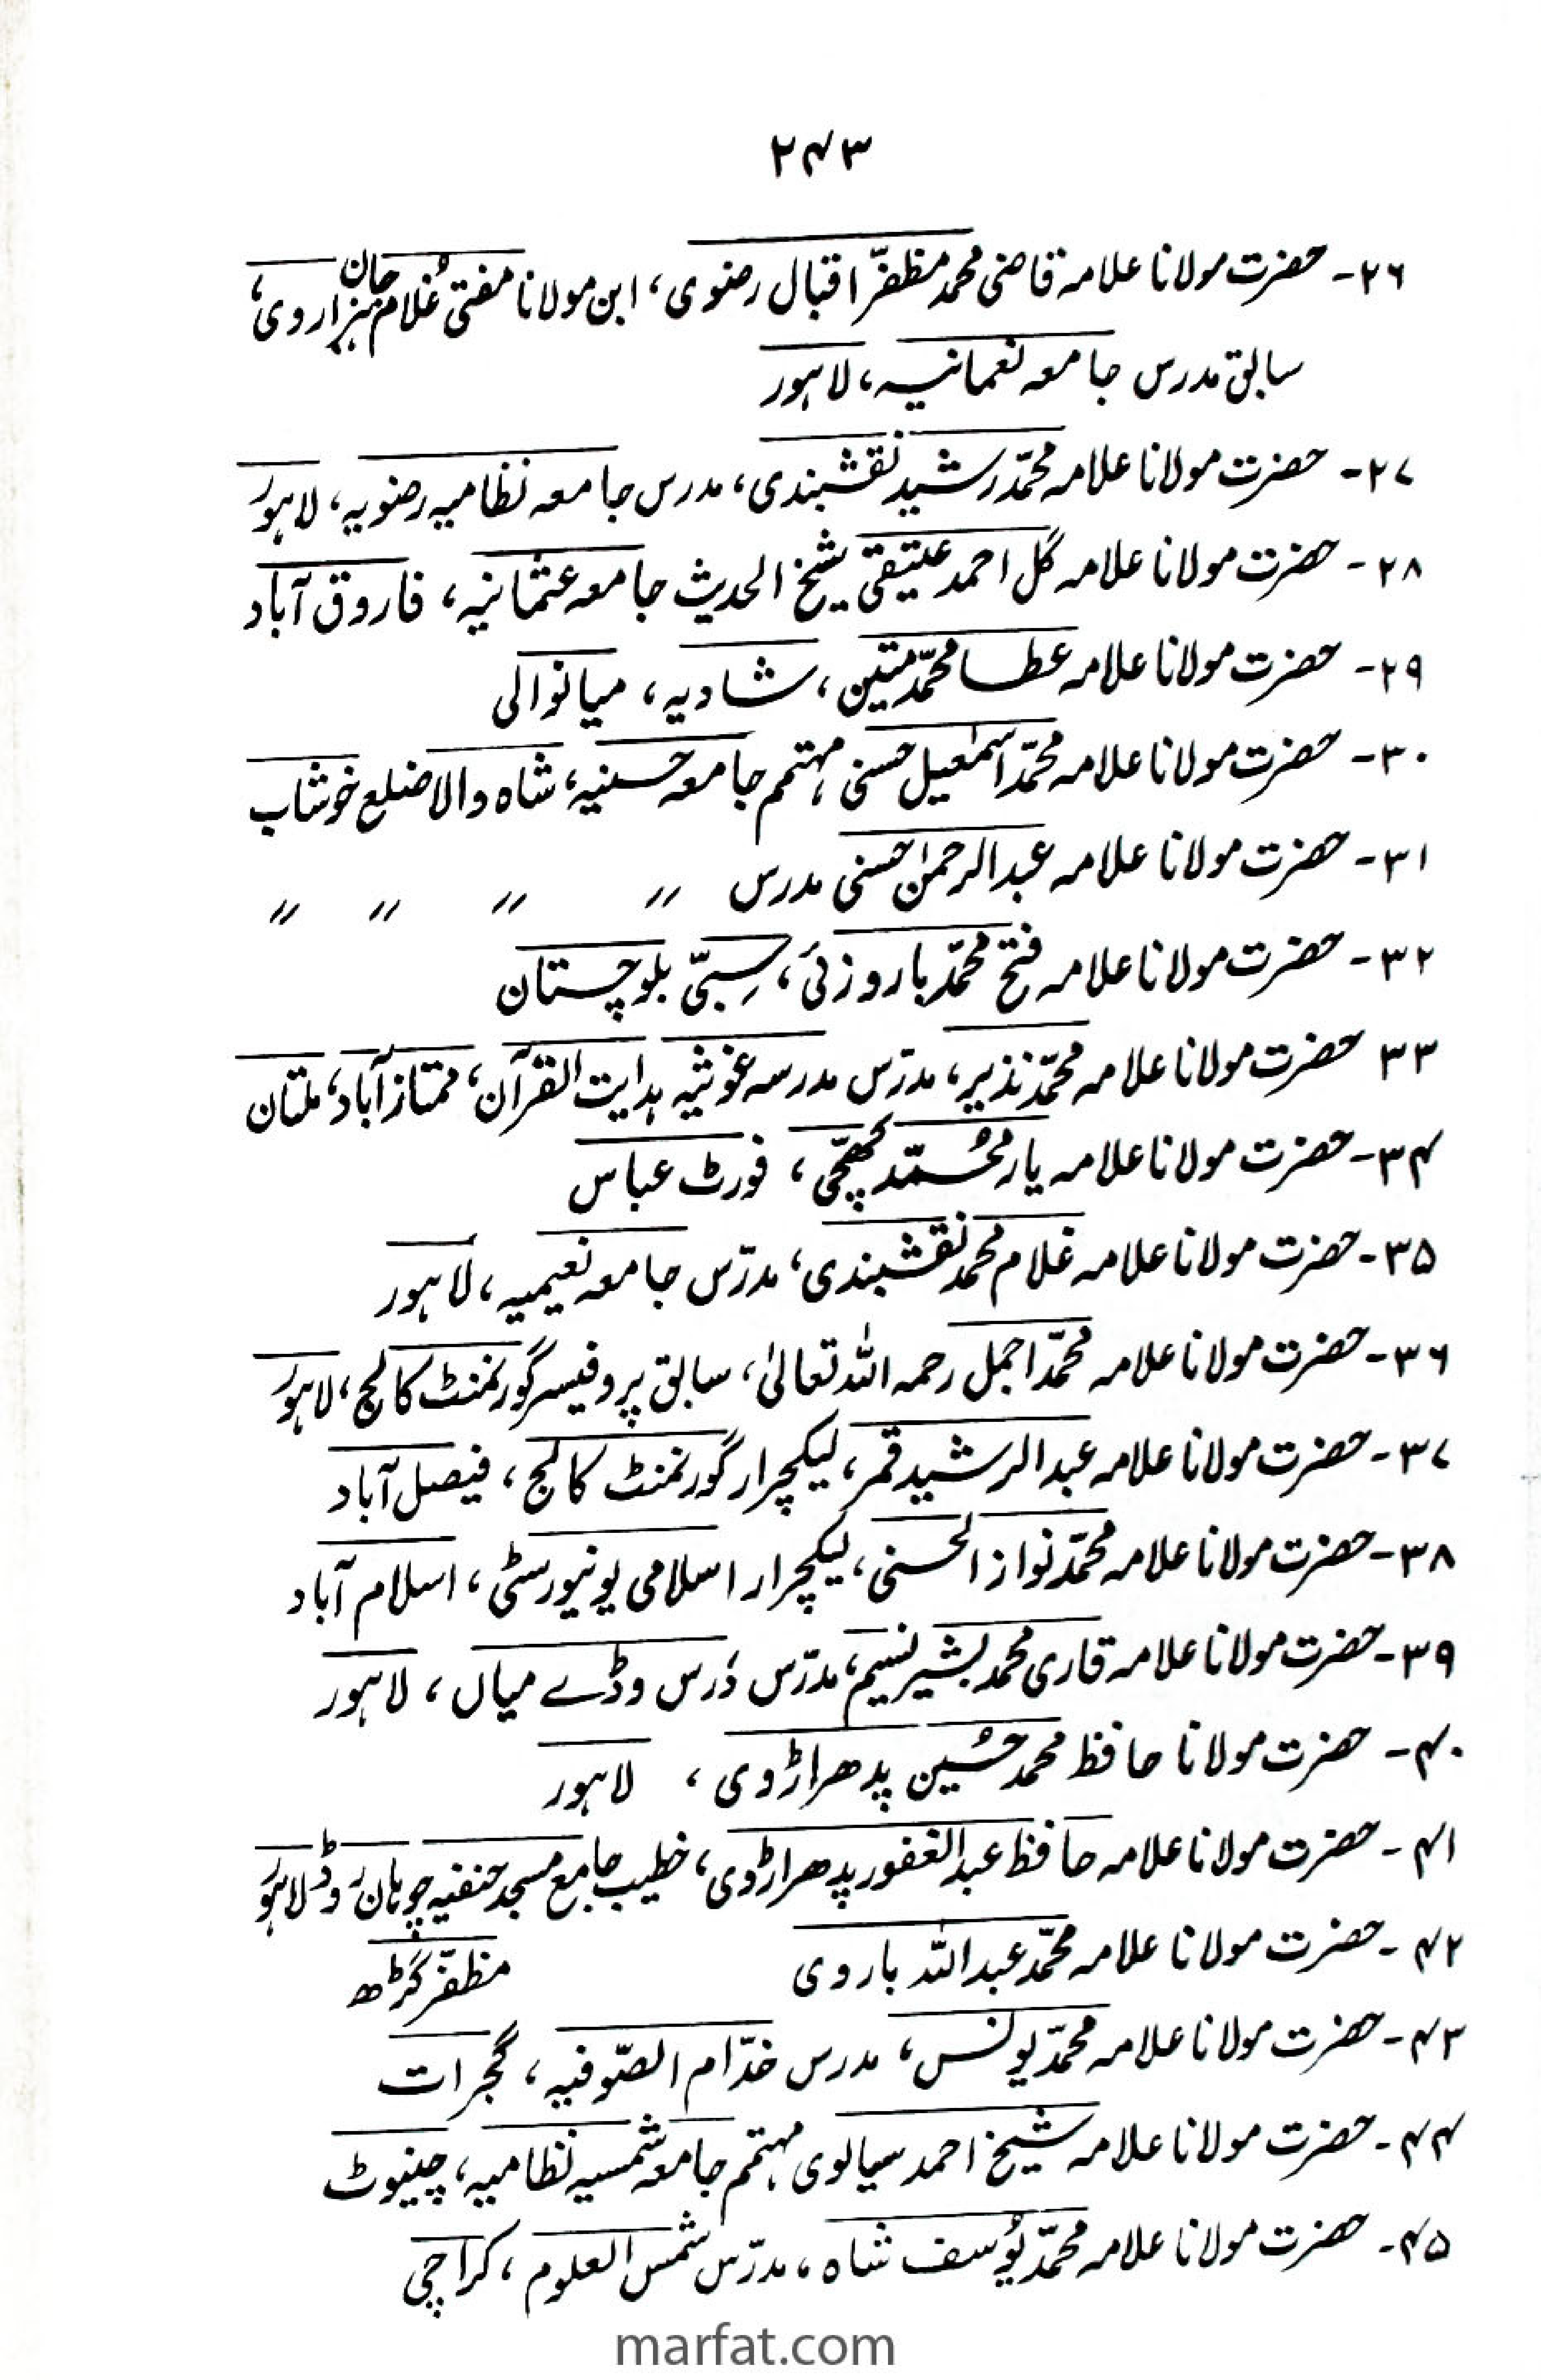 ۲۴۳
۲۶- حضرت مولانا علامہ قاضی محمد مظفّر اقبال رضوی، ابن مولانا مفتی غُلام جان ہزاروی،
سابق مدرس جامعہ نعمانیہ، لاہور
۲۷- حضرت مولانا علامہ محمّد رشید نقشبندی، مدرس جامعہ نظامیہ رضویہ، لاہور
۲۸- حضرت مولانا علامہ گل احمد عتیقی شیخ الحدیث جامعہ عثمانیہ، فاروق آباد
۲۹- حضرت مولانا علامہ عطا محمّد متین، شادیہ، میانوالی
۳۰- حضرت مولانا علامہ محمّد اسمٰعیل حسنی، مہتمم جامعہ حسنیہ، شاہ والا ضلع خوشاب
۳۱- حضرت مولانا علامہ عبدالرحمٰن حسنی مدرس 〃 〃 〃 〃
۳۲- حضرت مولانا علامہ فتح محمّد باروزئی، سِبّی بلوچستان
۳۳ حضرت مولانا علامہ محمّد نذیر، مدرّس مدرسہ غوثیہ ہدایت القرآن، ممتاز آباد، ملتان
۳۴- حضرت مولانا علامہ یار محُمّد کھچّی، فورٹ عباس
۳۵- حضرت مولانا علامہ غلام محمد نقشبندی، مدرّس جامعہ نعیمیہ، لاہور
۳۶- حضرت مولانا علامہ محمّد اجمل رحمہ اللہ تعالیٰ، سابق پروفیسر گورنمنٹ کالج، لاہور
۳۷- حضرت مولانا علامہ عبدالرشید قمر، لیکچرار گورنمنٹ کالج، فیصل آباد
۳۸- حضرت مولانا علامہ محمّد نواز الحسنی، لیکچرار اسلامی یونیورسٹی، اسلام آباد
۳۹- حضرت مولانا علامہ قاری محمد بشیر نسیم، مدرّس دَرس وڈے میاں، لاہور
۴۰- حضرت مولانا حافظ محمد حسُین پدھراڑوی، لاہور
۴۱- حضرت مولانا علامہ حافظ عبدالغفور پدھراڑوی، خطیب جامع مسجد حنفیہ چوہان روڈ لاہور
۴۲- حضرت مولانا علامہ محمّد عبداللہ باروی مظفّر گڑھ
۴۳- حضرت مولانا علامہ محمّد یونس، مدرس خدّام الصّوفیہ، گجرات
۴۴- حضرت مولانا علامہ شیخ احمد سیالوی مہتمم جامعہ شمسیہ نظامیہ، چنیوٹ
۴۵- حضرت مولانا علامہ محمّد یُوسف شاہ، مدرّس شمس العلوم، کراچی
marfat.com